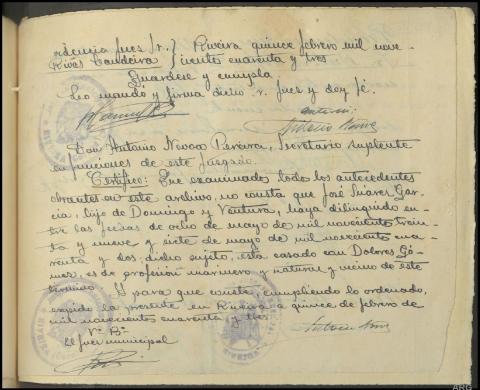 Rivas Candeira } Riveira quince febrero mil nove-
cientos cuarenta y tres
Guardese y cumpla.
Lo mandó y firma dicho Sr. Juez y doy fé.
Don Antonio Novoa Pereira, Secretario suplente
en funciones de este juzgado.
Certifico: Que examinado todo los antecedentes
obrantes en este archivo, no consta que José Suares Gar-
cia, hijo de Domingo y Ventura, haya dilinquido en-
tre las fechas de ocho de mayo de mil novecientos trein-
ta y nueve y siete de mayo de mil novecientos cua-
renta y dos; dicho sujeto, esta casado con Dolores Gó-
mez, es de profesión marinero y natural y vecino de este
termino.
Y para que conste, cumpliendo lo ordenado,
expido la presente en Riveira a quince de febrero de
mil novecientos cuarenta y tres
Vº Bº
El Juez municipal
ARG